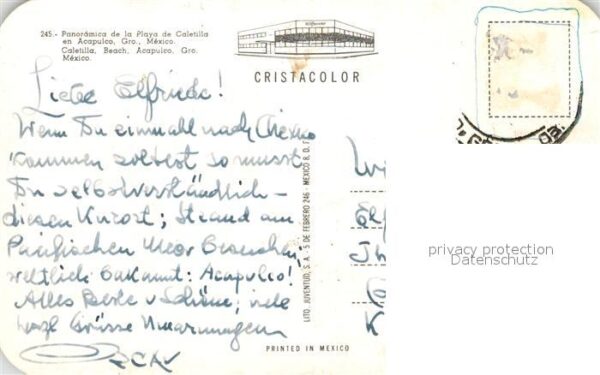 245.- Panorámica de la Playa de Caletilla
en Acapulco, Gro., México.
Caletilla, Beach, Acapulco, Gro.
México.
CRISTACOLOR
Liebe Elfriede!
Wenn Du einmahl nach Mexico
kommen solltest so musst
Du selbstverständlich
diesen Kurort; Strand am
Pacifischen Meer
weltlich bekannt: Acapulco!
Alles Beste u Schöne; viele
herzl Grüsse Umarmungen
LITO. JUVENTUD, S.A. 5 DE FEBRERO 246 - MEXICO 8, D.F.
PRINTED IN MEXICO
privacy protection
Datenschutz